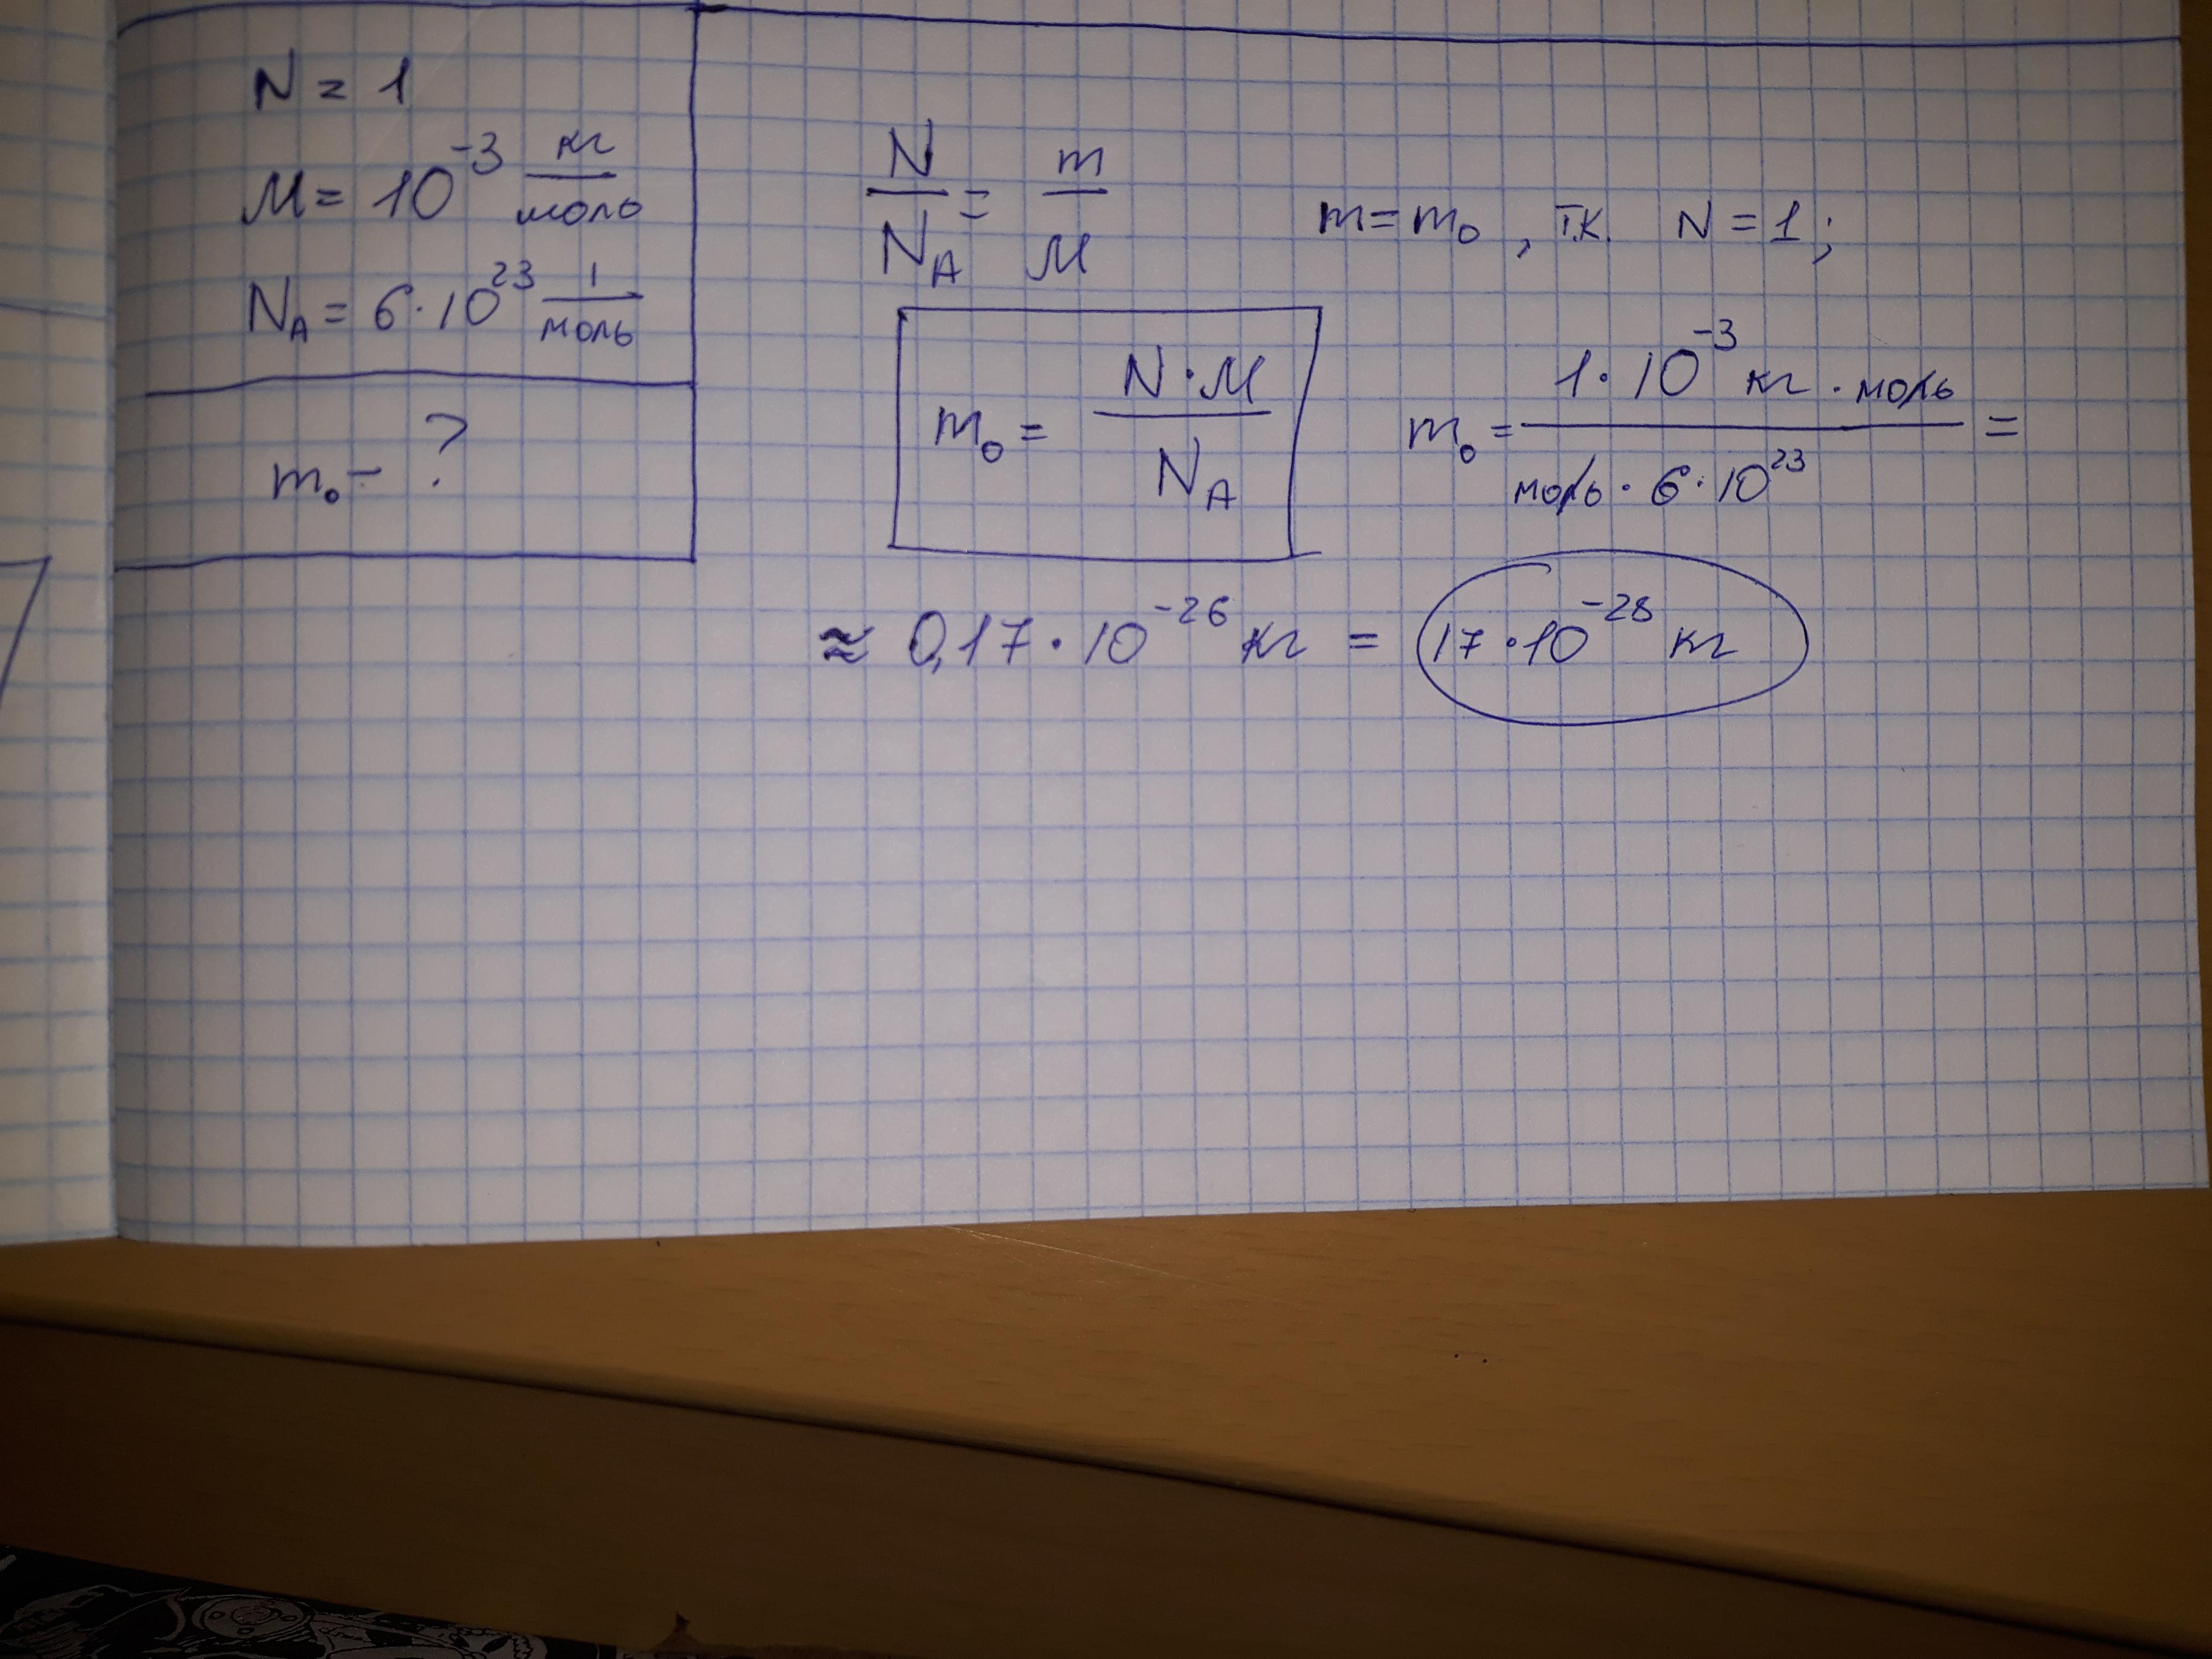 N = 1
M = 10⁻³ кг/моль
N_A = 6·10²³ 1/моль
m₀ - ?
N/N_A = m/M
m = m₀, т.к. N = 1;
m₀ = N·M/N_A
m₀ = 1·10⁻³ кг·моль/моль·6·10²³ =
≈ 0,17·10⁻²⁶ кг = 17·10⁻²⁸ кг